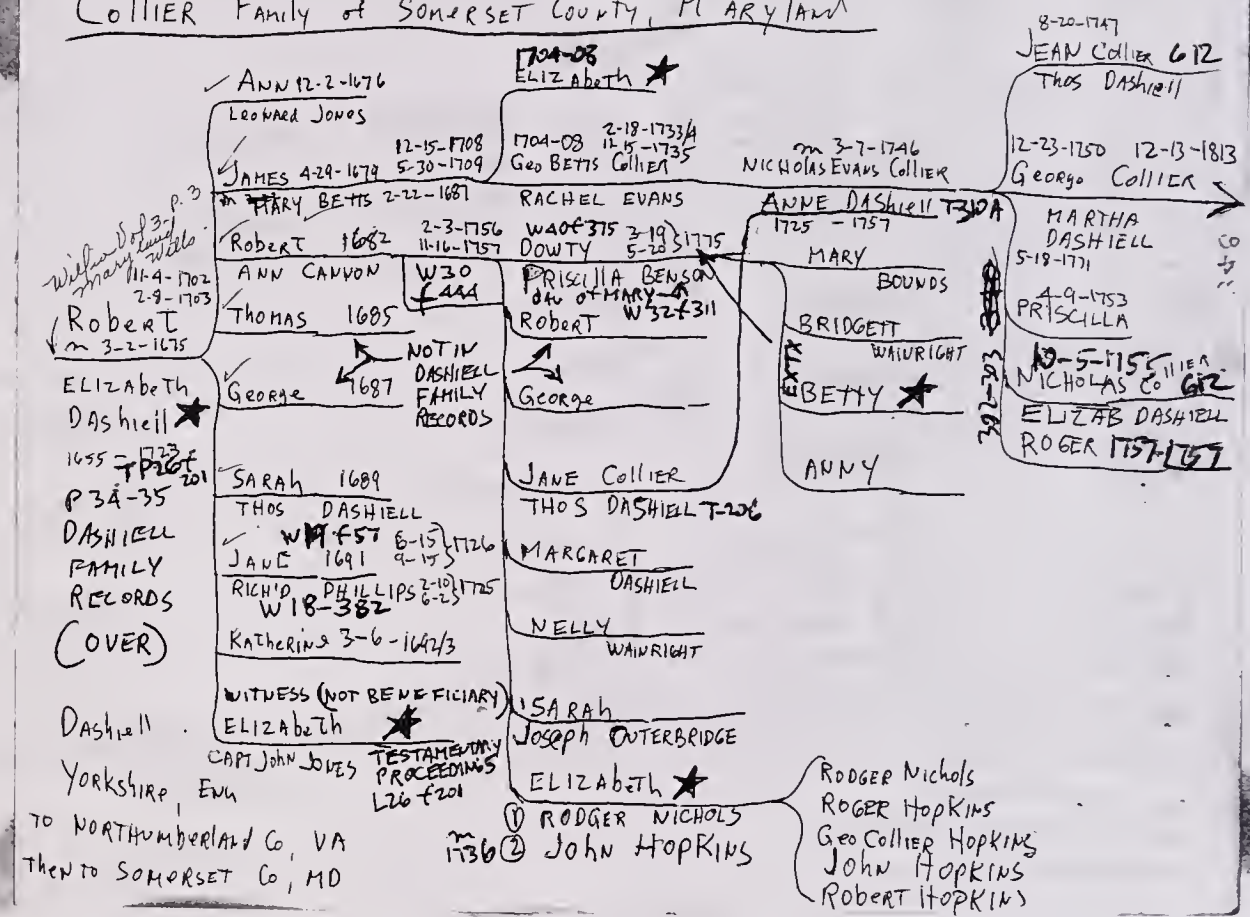 COLLIER FAMILY of SOMERSET COUNTY, MARYLAND
Will Vol 3 - p. 3
Maryland Wills
11-4-1702
2-8-1703
Robert
m 3-2-1675
ELIZAbeTh
DAshiell ★
1655 - 1723
TP26f
201
P 34-35
DASHIELL
FAMILY
RECORDS
(OVER)
Dashiell
YORKShire, ENG
TO NORTHumberland Co, VA
Then To SOMERSET Co, MD
✓ ANN 12-2-1676
Leonard Jones
✓ JAMES 4-29-1679
12-15-1708
5-30-1709
m MARY BETTS 2-22-1687
✓ Robert 1682
2-3-1756
11-16-1757
ANN CANNON
W30
f 444
✓ Thomas 1685
NOT IN
DASHIELL
FAMILY
RECORDS
✓ George 1687
✓ SARAH 1689
THOS DASHIELL
W19 f57 8-15 } 1726
9-15
✓ JANE 1691
RICH'D PHILLIPS 2-10 } 1725
6-2
W18-382
KATherine 3-6-1692/3
WITNESS (NOT BENEFICIARY)
ELIZAbeTh ★
CAPT John JONES
TESTAMENTARY
PROCEEDINGS
L26 f201
1704-08
ELIZAbeTh ★
1704-08
2-18-1733/4
12-15-1735
Geo BETTS Collier
RACHEL EVANS
W40f375 3-19 } 1775
DOWTY 5-20
PRISCILLA BENSON
dau of MARY
W32f311
Robert
George
JANE Collier
THOS DASHIELL T-206
MARGARET
DASHIELL
NELLY
WAINRIGHT
SARAh
Joseph OUTERBRIDGE
ELIZAbeTh ★
① RODGER NICHOLS
m
1736 ② John HOPKINS
RODGER Nichols
ROGER HopKINS
Geo Collier HopKINS
John HopKINS
RobeRT HopKINS
m 3-7-1746
NICHOLAS EVANS Collier
ANNE DAShiell T-310A
1725 - 1757
MARY
BOUNDS
BRIDGETT
WAINRIGHT
EXTX
BETTY ★
ANNY
8-20-1747
JEAN Collier 612
Thos DAShiell
12-23-1750 12-13-1813
George Collier
MARTHA
DASHIELL
5-18-1771
4-9-1753
PRISCILLA
302-303
10-5-1755
NICHOLAS Collier 612
ELIZAB DASHIELL
ROGER 1757-1757